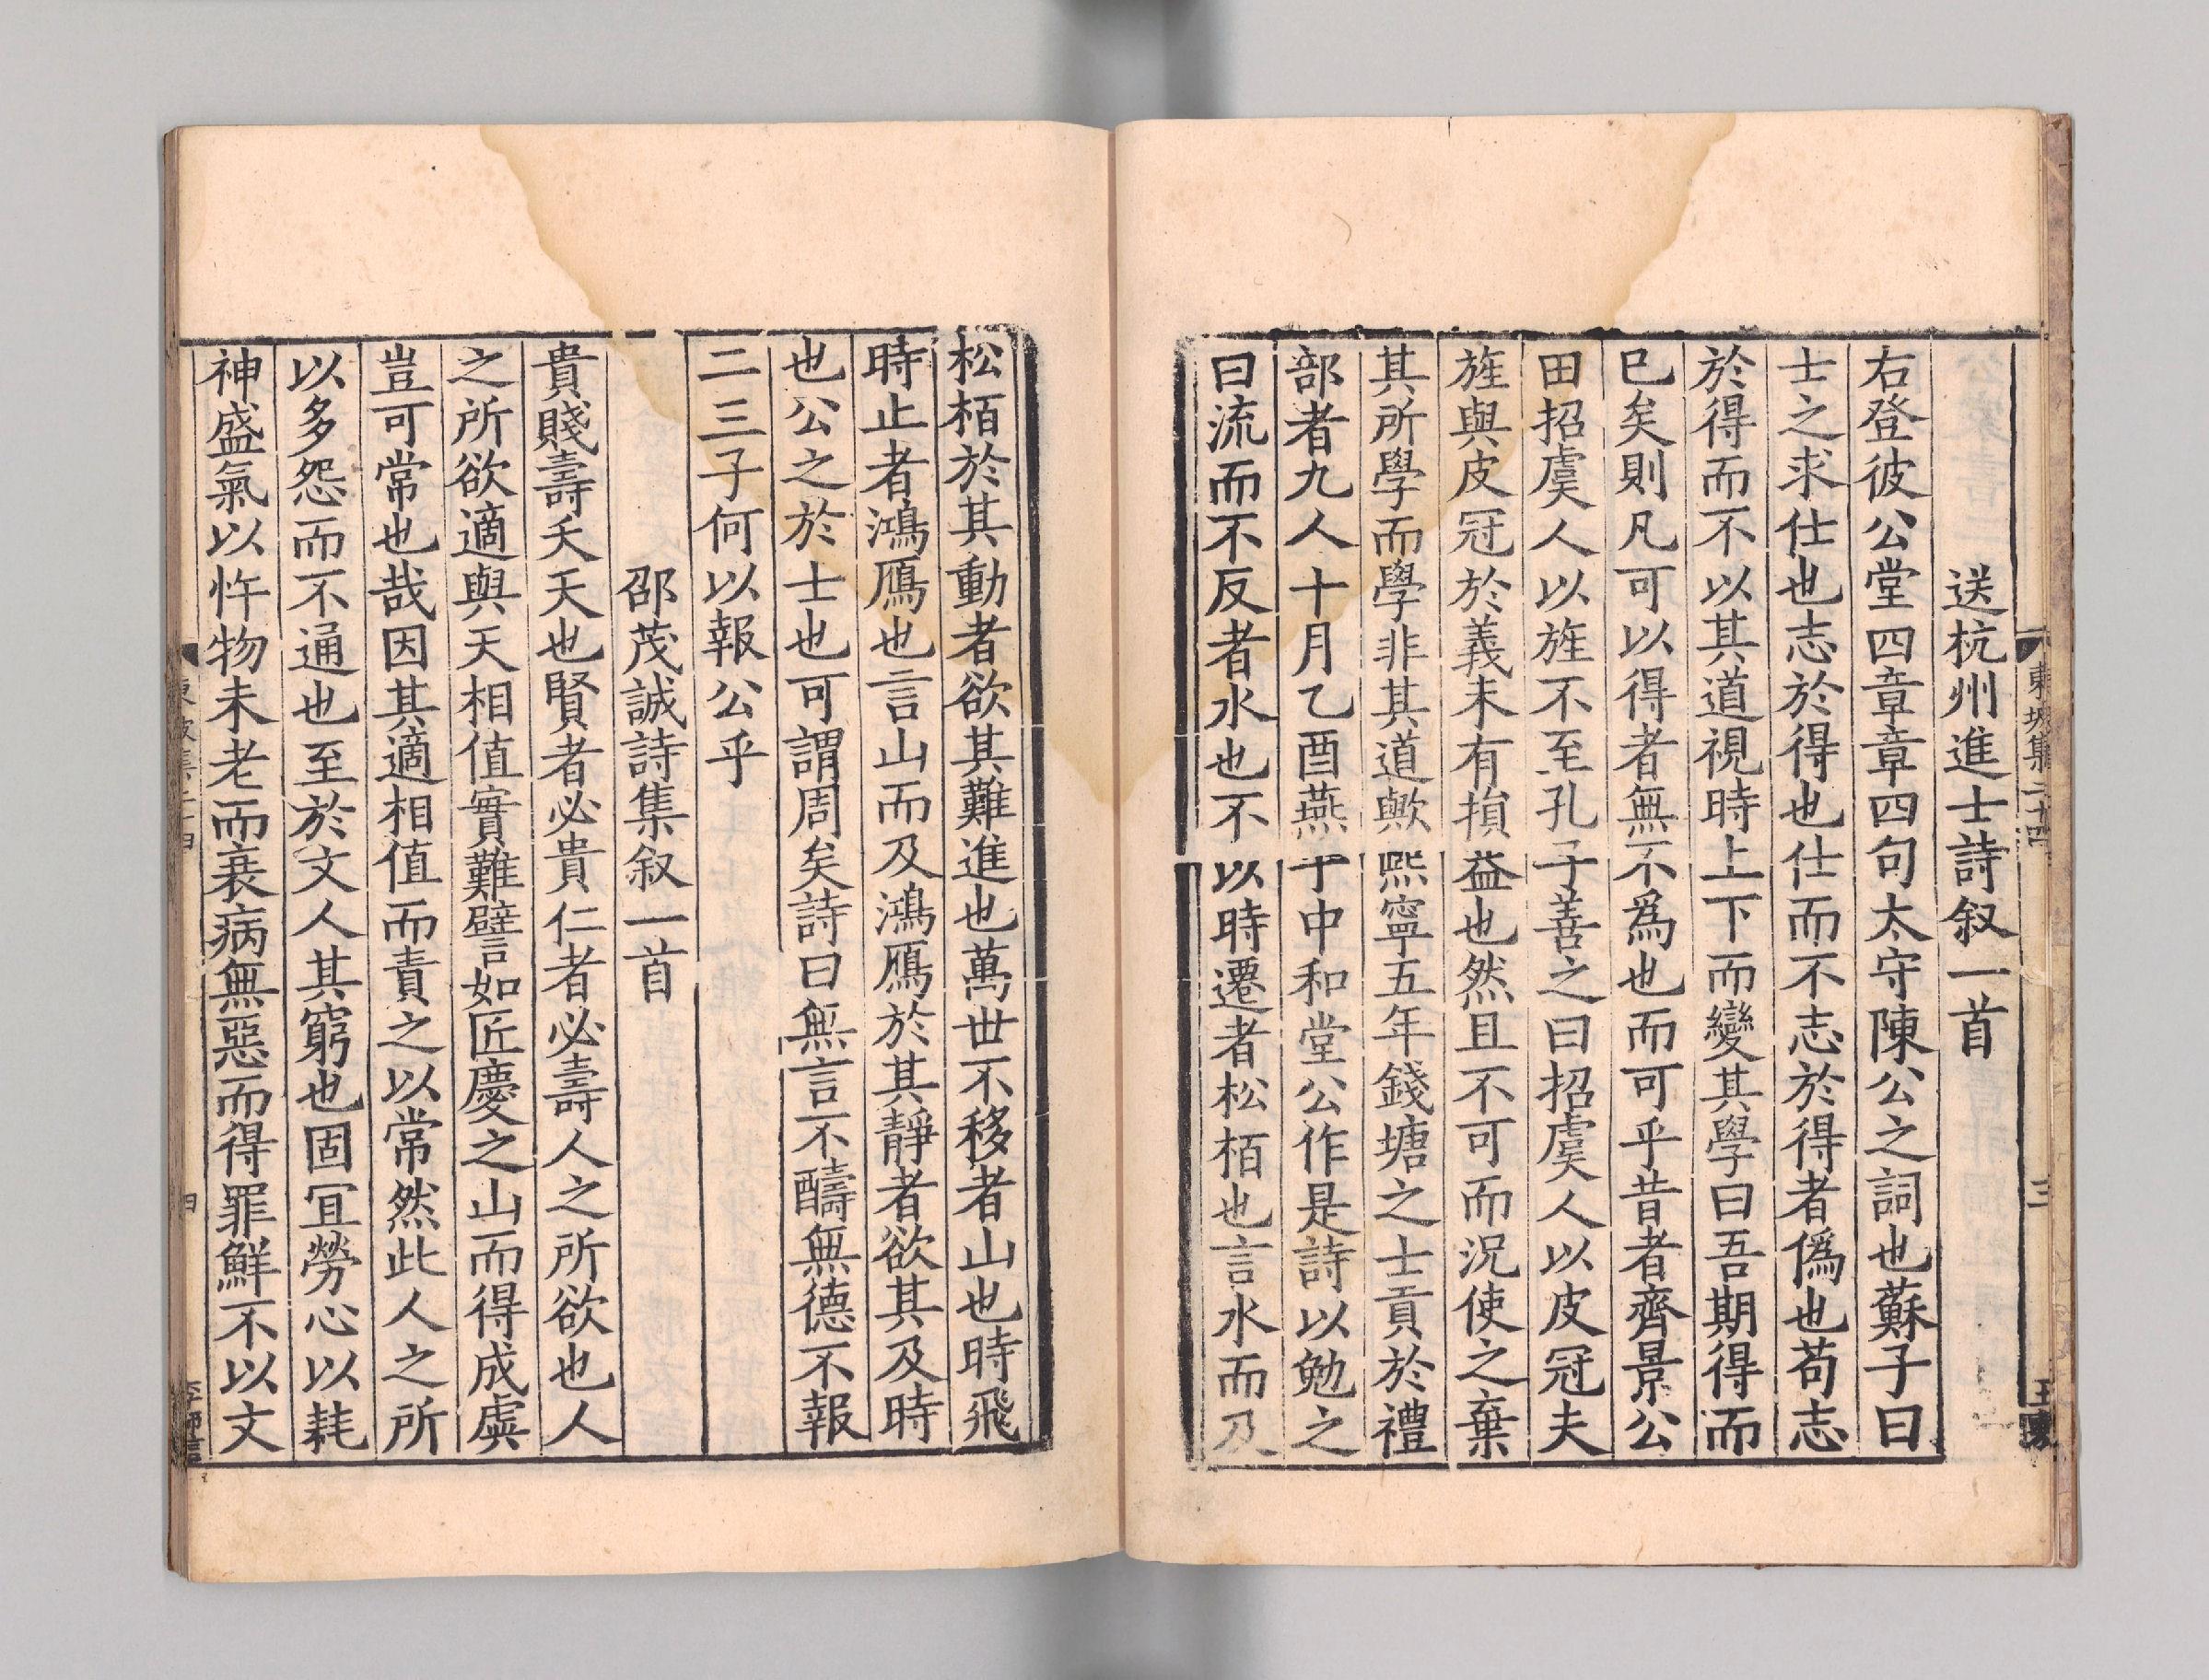 東坡集二十四
三
送杭州進士詩叙一首
右登彼公堂四章章四句太守陳公之詞也蘇子曰
士之求仕也志於得也仕而不志於得者僞也苟志
於得而不以其道視時上下而變其學曰吾期得而
已矣則凡可以得者無不爲也而可乎昔者齊景公
田招虞人以旌不至孔子善之曰招虞人以皮冠夫
旌與皮冠於義未有損益也然且不可而況使之棄
其所學而學非其道歟熙寧五年錢塘之士貢於禮
部者九人十月乙酉燕于中和堂公作是詩以勉之
曰流而不反者水也不以時遷者松栢也言水而及
松栢於其動者欲其難進也萬世不移者山也時飛
時止者鴻鴈也言山而及鴻鴈於其靜者欲其及時
也公之於士也可謂周矣詩曰無言不醻無德不報
二三子何以報公乎
邵茂誠詩集叙一首
貴賤壽夭天也賢者必貴仁者必壽人之所欲也人
之所欲適與天相值實難譬如匠慶之山而得成虡
豈可常也哉因其適相值而責之以常然此人之所
以多怨而不通也至於文人其窮也固宜勞心以耗
神盛氣以忤物未老而衰病無惡而得罪鮮不以文
東坡集二十四
四